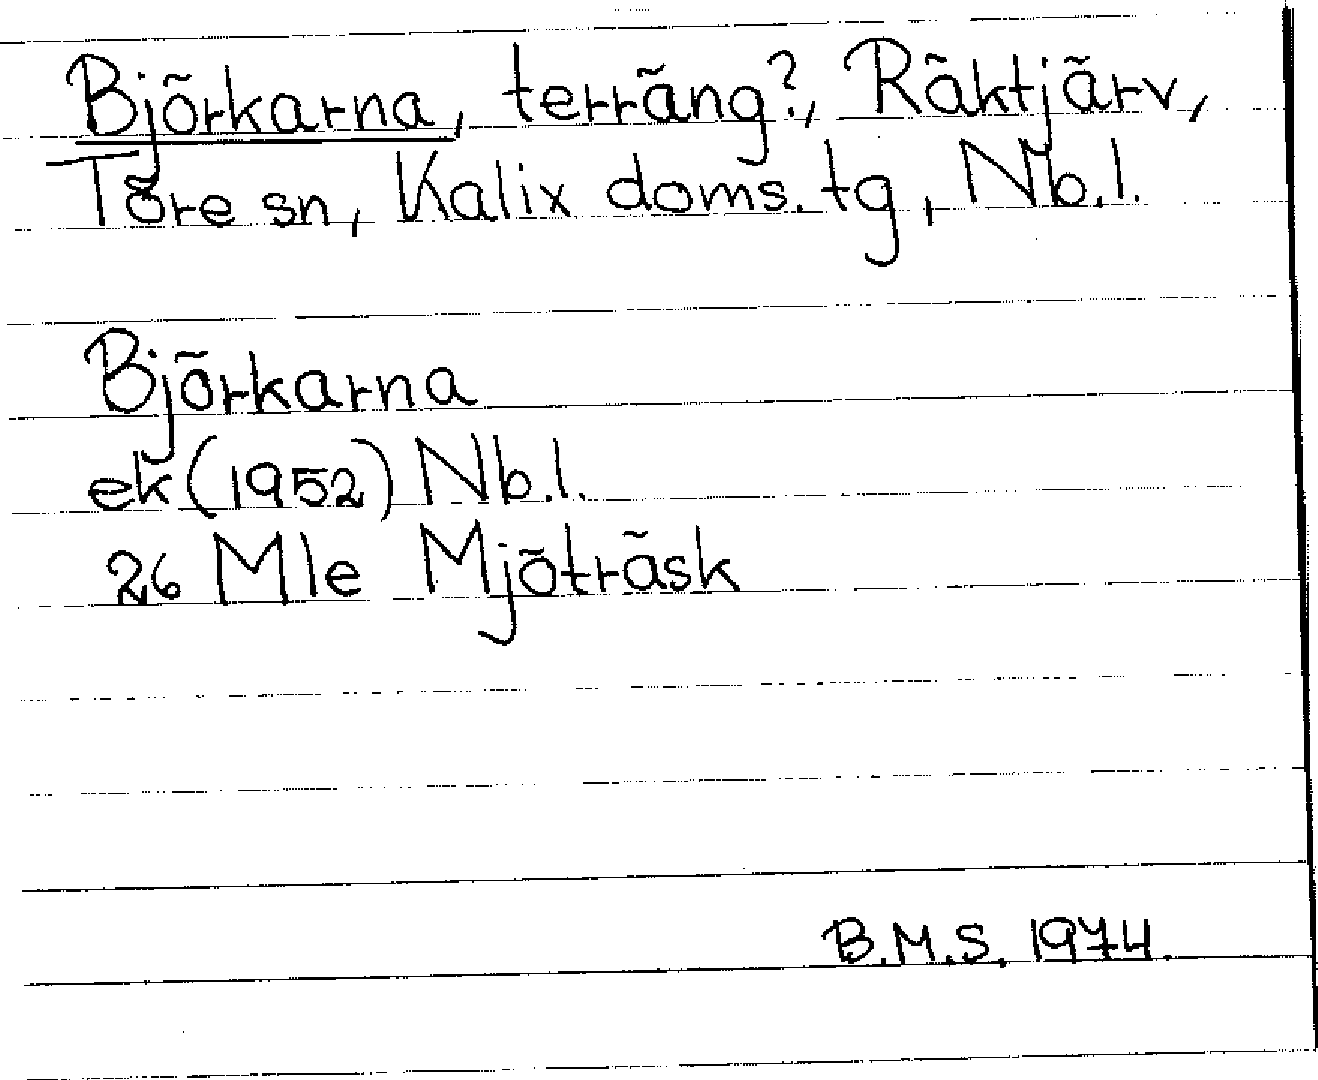 Björkarna, terräng?, Räktjärv,
Töre sn, Kalix doms.tg, Nb.l.
Björkarna
ek (1952) Nb.l.
26 Mle Mjöträsk
B.M.S. 1974.